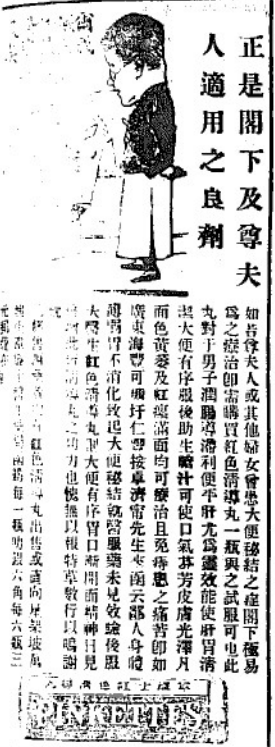 正是閣下及尊夫
人適用之良劑
如若尊夫人或其他婦女曾患大便秘結之症閣下極易
為之療治卽需購買紅色清導丸一瓶與之試服可也此
丸對于男子潤腸導滯利便平肝尤為靈效能使肝胃清
潔大便有序服後助生膽汁可使口氣芬芳皮膚光澤凡
面色黃萎及紅瘰滿面均可療治且免痔患之痛苦卽如
廣東海豐可塘圩仁豐接卓濟甯先生來函云鄙人身體
薄弱胃不消化致起大便秘結就醫服藥未見效驗後服
大醫生紅色清導丸大便有序胃口漸開面精神日見
清導丸之功力也愧無以報特草數行以鳴謝
忱
紅色清導丸出售或直向架坡萬
函購每一瓶叻銀六角每六瓶三
PINKETTES